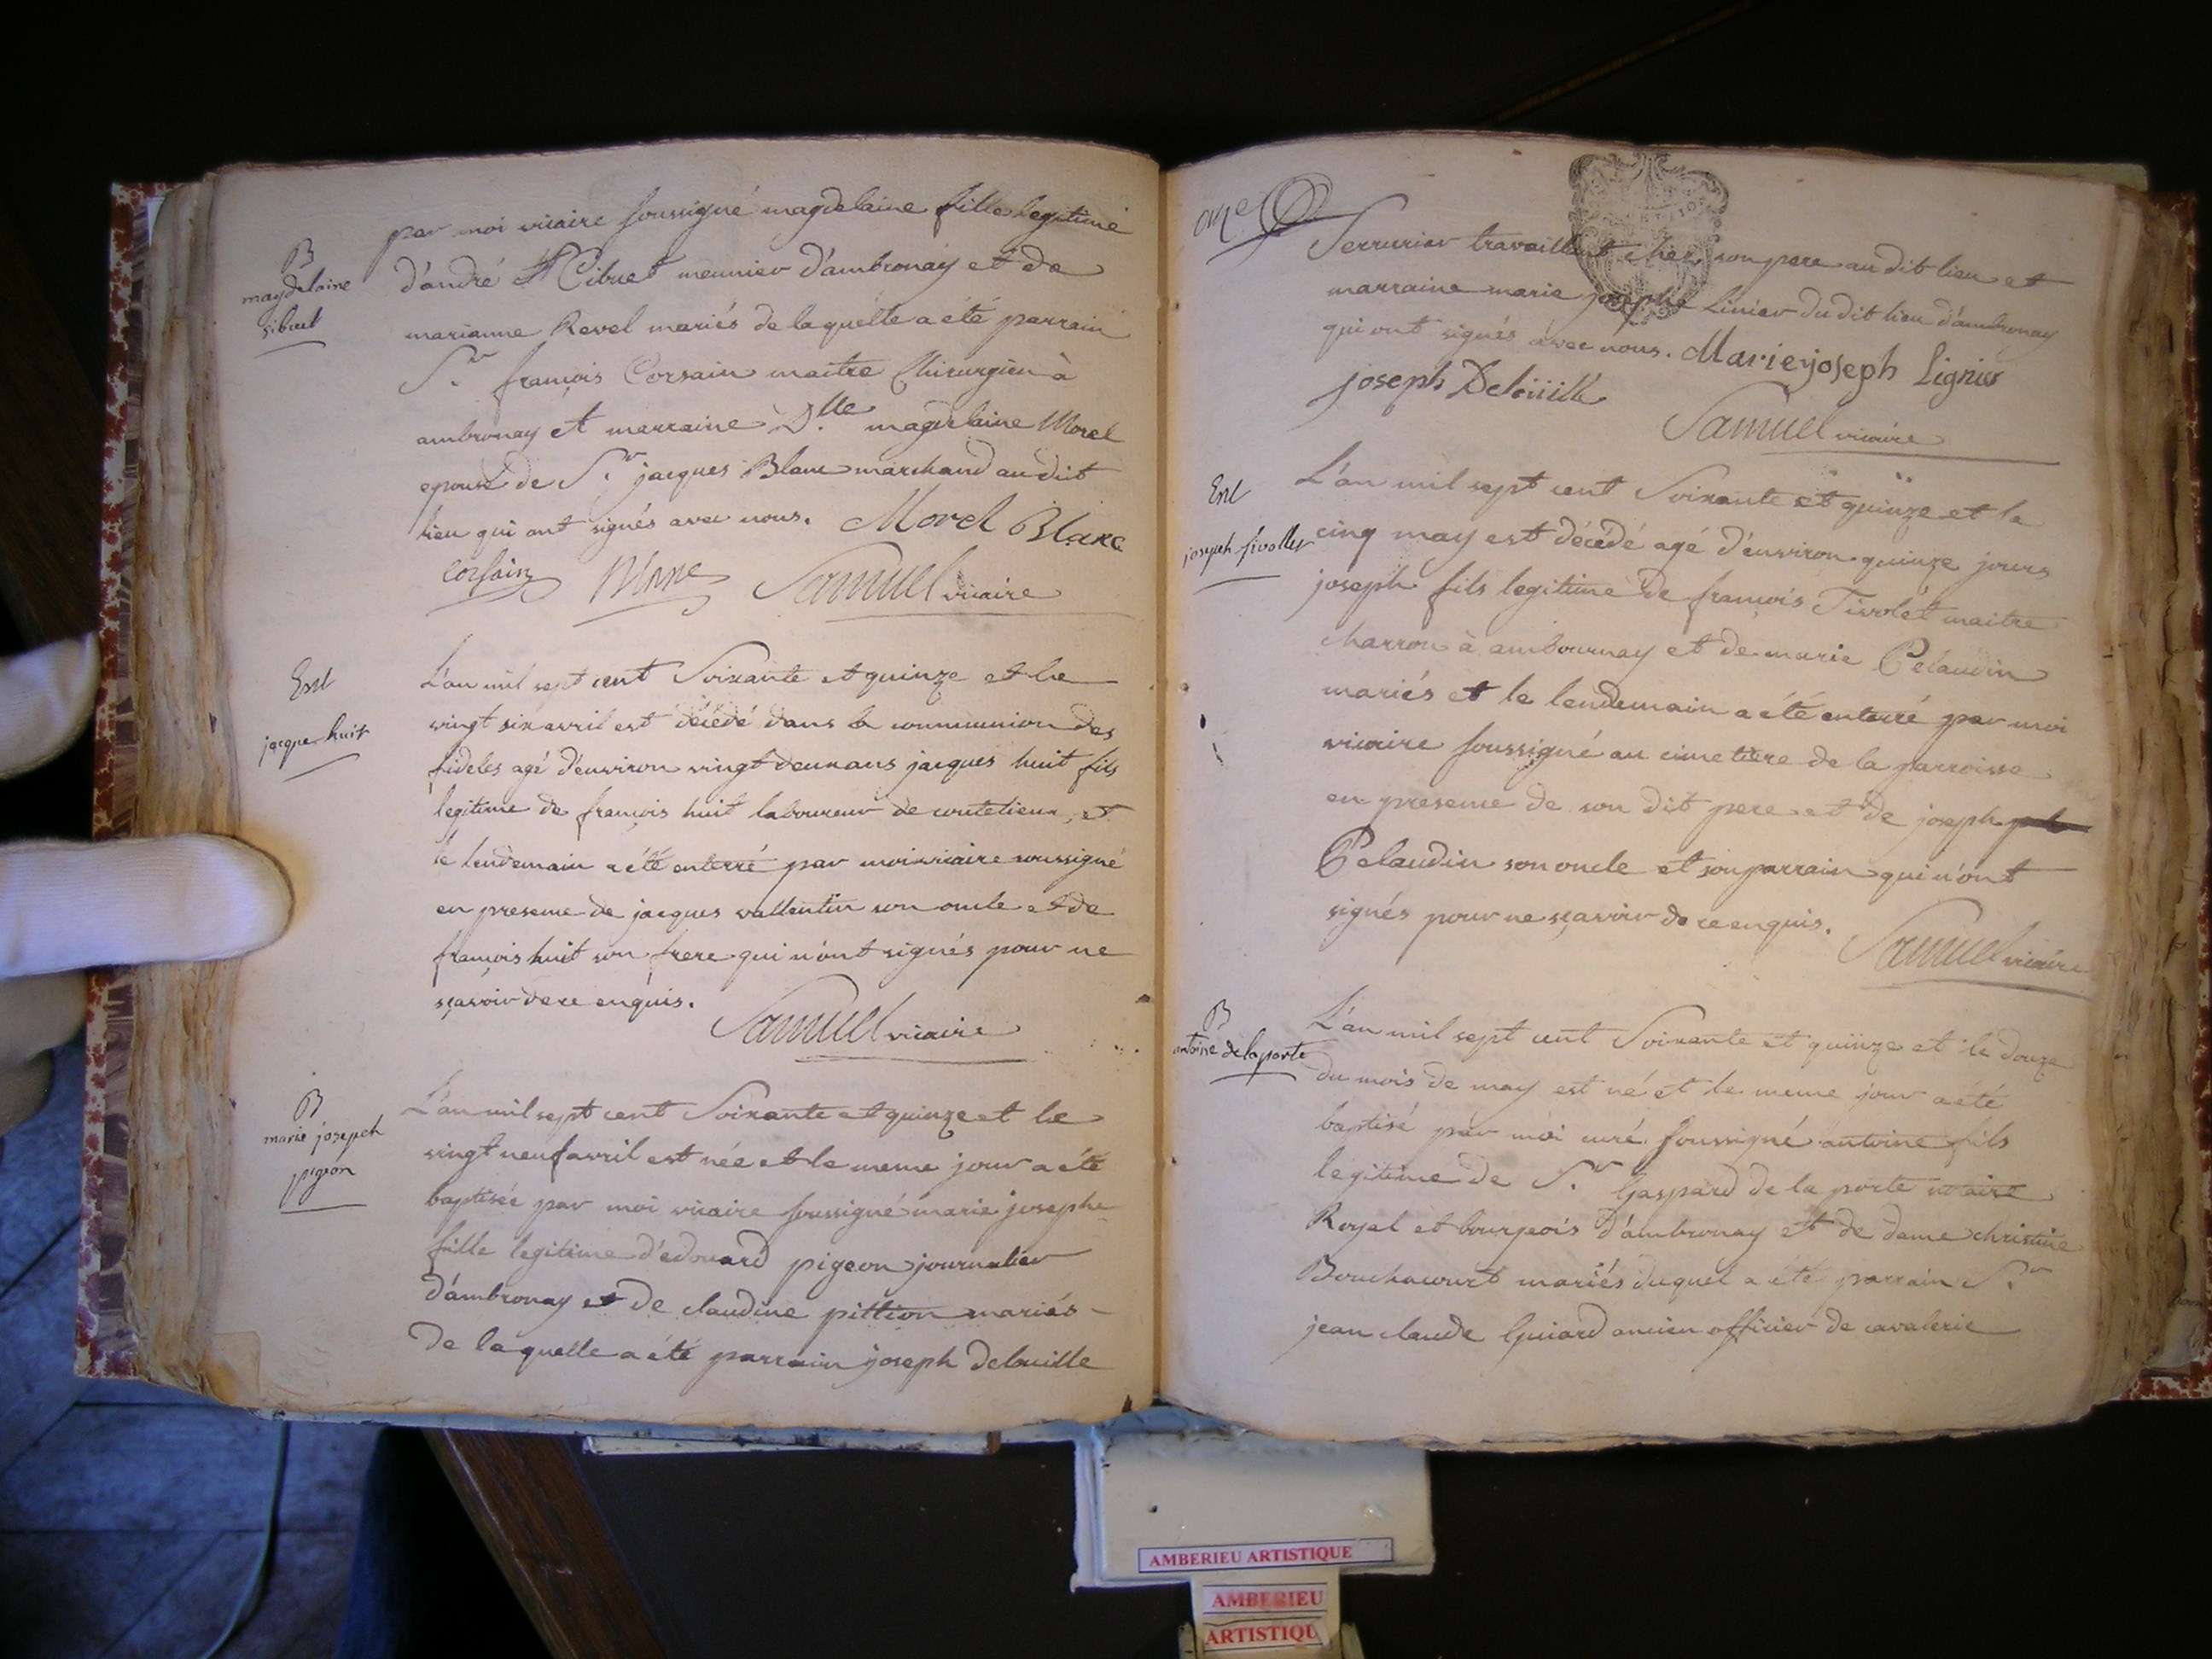 par moi vicaire soussigné magdelaine fille legitime
B
magdelaine
sibuet
d'andré Cibuet meunier d'ambronay et de
marianne Revel mariés de laquelle a eté parrain
Sr. françois Corsain maitre Chirurgien à
ambronay et marraine Dlle. magdelaine Morel
epouse de Sr. jacques Blanc marchand au dit
lieu qui ont signés avec nous. Morel Blanc
corsain Blanc Samuel vicaire
Ent
jacque huit
L'an mil sept cent Soixante et quinze et le
vingt six avril est décédé dans la communion des
fideles agé d'environ vingt deux ans jacques huit fils
legitime de françois huit laboureur de coutelieux, et
le lendemain a été enterré par moi vicaire soussigné
en presence de jacques vallentin son oncle et de
françois huit son frere qui n'ont signés pour ne
sçavoir de ce enquis.
Samuel vicaire
B
marie joseph
pigeon
L'an mil sept cent Soixante et quinze et le
vingt neuf avril est née et le meme jour a été
baptisée par moi vicaire soussigné marie josephe
fille legitime d'edouard pigeon journalier
d'ambronay et de claudine pittion mariés
de laquelle a été parrain joseph delaville
Serrurier travaillant chez son pere au dit lieu et
marraine marie josephe Linier du dit lieu d'ambronay
qui ont signés avec nous. Marie joseph Lignier
joseph
Samuel vicaire
Ent
joseph tivollet
L'an mil sept cent Soixante et quinze et le
cinq may est décédé agé d'environ quinze jours
joseph fils legitime de françois Tivolet maitre
charron à ambournay et de marie Pelaudin
mariés et le lendemain a été enterré par moi
vicaire soussigné au cimetière de la parroisse
en presence de son dit pere et de joseph
Pelaudin son oncle et son parrain qui n'ont
signés pour ne sçavoir de ce enquis.
Samuel vicaire
B
antoine de la porte
L'an mil sept cent Soixante et quinze et le douze
du mois de may est né et le meme jour a été
baptisé par moi curé soussigné antoine fils
legitime de Sr. Gaspard de la porte notaire
Royal et bourgeois d'ambronay et de dame christine
Bouchacourt mariés duquel a été parrain Sr.
jean claude Guiard ancien officier de cavalerie
AMBERIEU ARTISTIQUE
AMBERIEU
ARTISTIQU